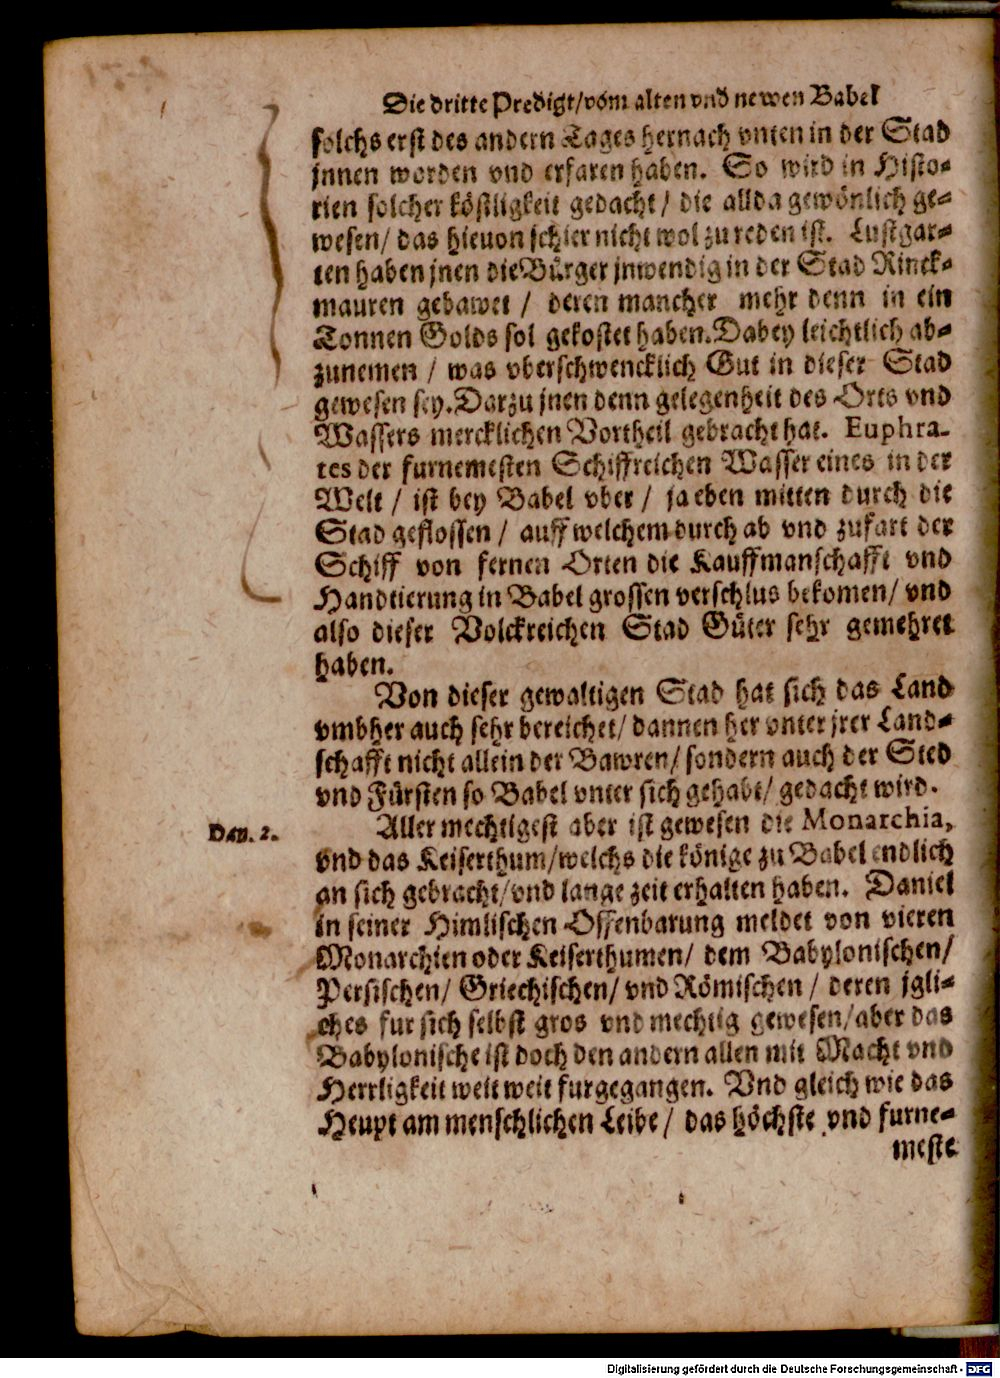 Die dritte Predigt/vom alten vnd newen Babel
solchs erst des andern Tages hernach vnten in der Stad
jnnen worden vnd erfaren haben. So wird in Histo-
rien solcher köstligkeit gedacht / die allda gewönlich ge-
wesen/ das hieuon schier nicht wol zu reden ist. Lustgar-
ten haben jnen die Bürger jnwendig in der Stad Rinck-
mauren gebawet / deren mancher mehr denn in ein
Tonnen Golds sol gekostet haben. Dabey leichtlich ab-
zunemen / was vberschwencklich Gut in dieser Stad
gewesen sey. Darzu jnen denn gelegenheit des Orts vnd
Wassers mercklichen Vortheil gebracht hat. Euphra-
tes der furnemesten Schiffreichen Wasser eines in der
Welt / ist bey Babel vber / ja eben mitten durch die
Stad geflossen / auff welchem durch ab vnd zufart der
Schiff von fernen Orten die Kauffmanschafft vnd
Handtierung in Babel grossen verschlus bekomen/ vnd
also dieser Volckreichen Stad Güter sehr gemehret
haben.
Von dieser gewaltigen Stad hat sich das Land
vmbher auch sehr bereichet/ dannen her vnter jrer Land-
schafft nicht allein der Bawren/ sondern auch der Sted
vnd Fürsten so Babel vnter sich gehabt/ gedacht wird.
Dan. 2.
Aller mechtigest aber ist gewesen die Monarchia,
vnd das Keiserthum/welchs die könige zu Babel endlich
an sich gebracht/vnd lange zeit erhalten haben. Daniel
in seiner Himlischen Offenbarung meldet von vieren
Monarchien oder Keiserthumen/ dem Babylonischen/
Persischen/ Griechischen/ vnd Römischen / deren jgli-
ches fur sich selbst gros vnd mechtig gewesen/aber das
Babylonische ist doch den andern allen mit Macht vnd
Herrligkeit weit weit furgegangen. Vnd gleich wie das
Heupt am menschlichen Leibe / das höchste vnd furne-
meste
Digitalisierung gefördert durch die Deutsche Forschungsgemeinschaft - DFG